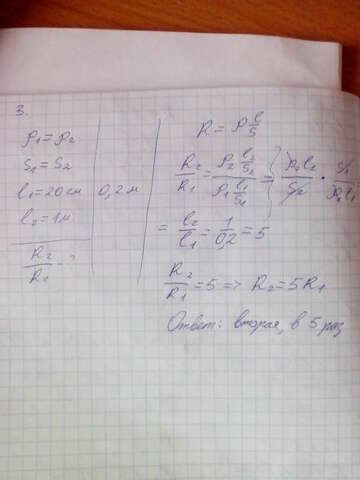 3.
ρ₁=ρ₂
S₁=S₂
l₁=20см 0,2м
l₂=1м
R₂/R₁-?
R=ρ l/S
R₂/R₁ = (ρ₂ l₂/S₂)/(ρ₁ l₁/S₁) = ρ₂l₂/S₂ · S₁/ρ₁l₁
= l₂/l₁ = 1/0,2 = 5
R₂/R₁ = 5 => R₂=5R₁
Ответ: вторая, в 5 раз